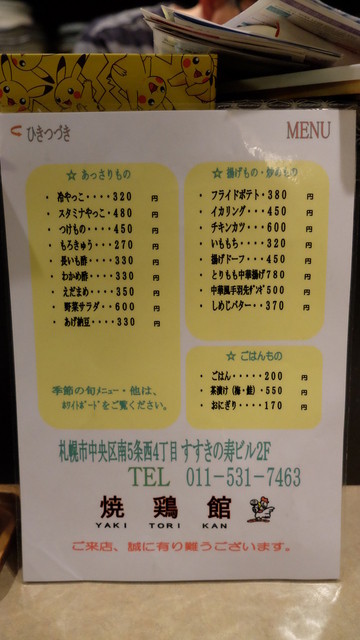 ひきつづき
MENU
☆ あっさりもの
・ 冷やっこ・・・・320 円
・ スタミナやっこ・480 円
・ つけもの・・・・450 円
・ もろきゅう・・・270 円
・ 長いも酢・・・・330 円
・ わかめ酢・・・・330 円
・ えだまめ・・・・350 円
・ 野菜サラダ・・・600 円
・ あげ納豆・・・・330 円
季節の旬メニュー・他は、
ホワイトボードをご覧ください。
☆ 揚げもの・炒めもの
・ フライドポテト・380 円
・ イカリング・・・450 円
・ チキンカツ・・・600 円
・ いももち・・・・320 円
・ 揚げドーフ・・・450 円
・ とりもも中華揚げ780 円
・ 中華風手羽先ギョウザ500 円
・ しめじバター・・370 円
☆ ごはんもの
・ ごはん・・・・・200 円
・ 茶漬け（梅・鮭）・550 円
・ おにぎり・・・・170 円
札幌市中央区南5条西4丁目 すすきの寿ビル2F
TEL 011-531-7463
焼 鶏 館
YAKI TORI KAN
ご来店、誠に有り難うございます。